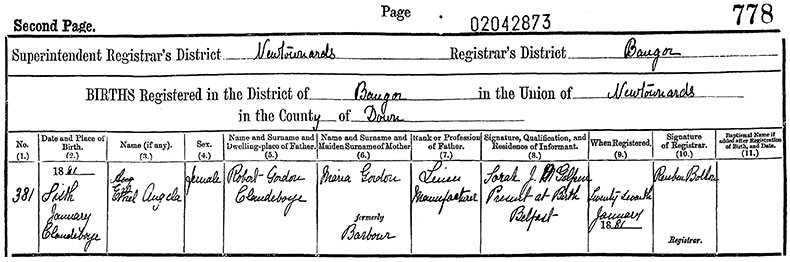 Page 02042873 778
Second Page.
Superintendent Registrar's District Newtownards Registrar's District Bangor
BIRTHS Registered in the District of Bangor in the Union of Newtownards
in the County of Down
No. (1.) Date and Place of Birth. (2.) Name (if any). (3.) Sex. (4.) Name and Surname and Dwelling-place of Father. (5.) Name and Surname and Maiden Surname of Mother (6.) Rank or Profession of Father. (7.) Signature, Qualification, and Residence of Informant. (8.) When Registered. (9.) Signature of Registrar. (10.) Baptismal Name if added after Registration of Birth, and Date. (11.)
381
1881
Sixth
January
Clandeboye
Ethel Angela
female
Robert Gordon
Clandeboye
Maria Gordon
formerly
Barbour
Linen
Manufacturer
Sarah J.
Present at Birth
Belfast
Twenty seventh
January
1881
Reuben
Registrar.